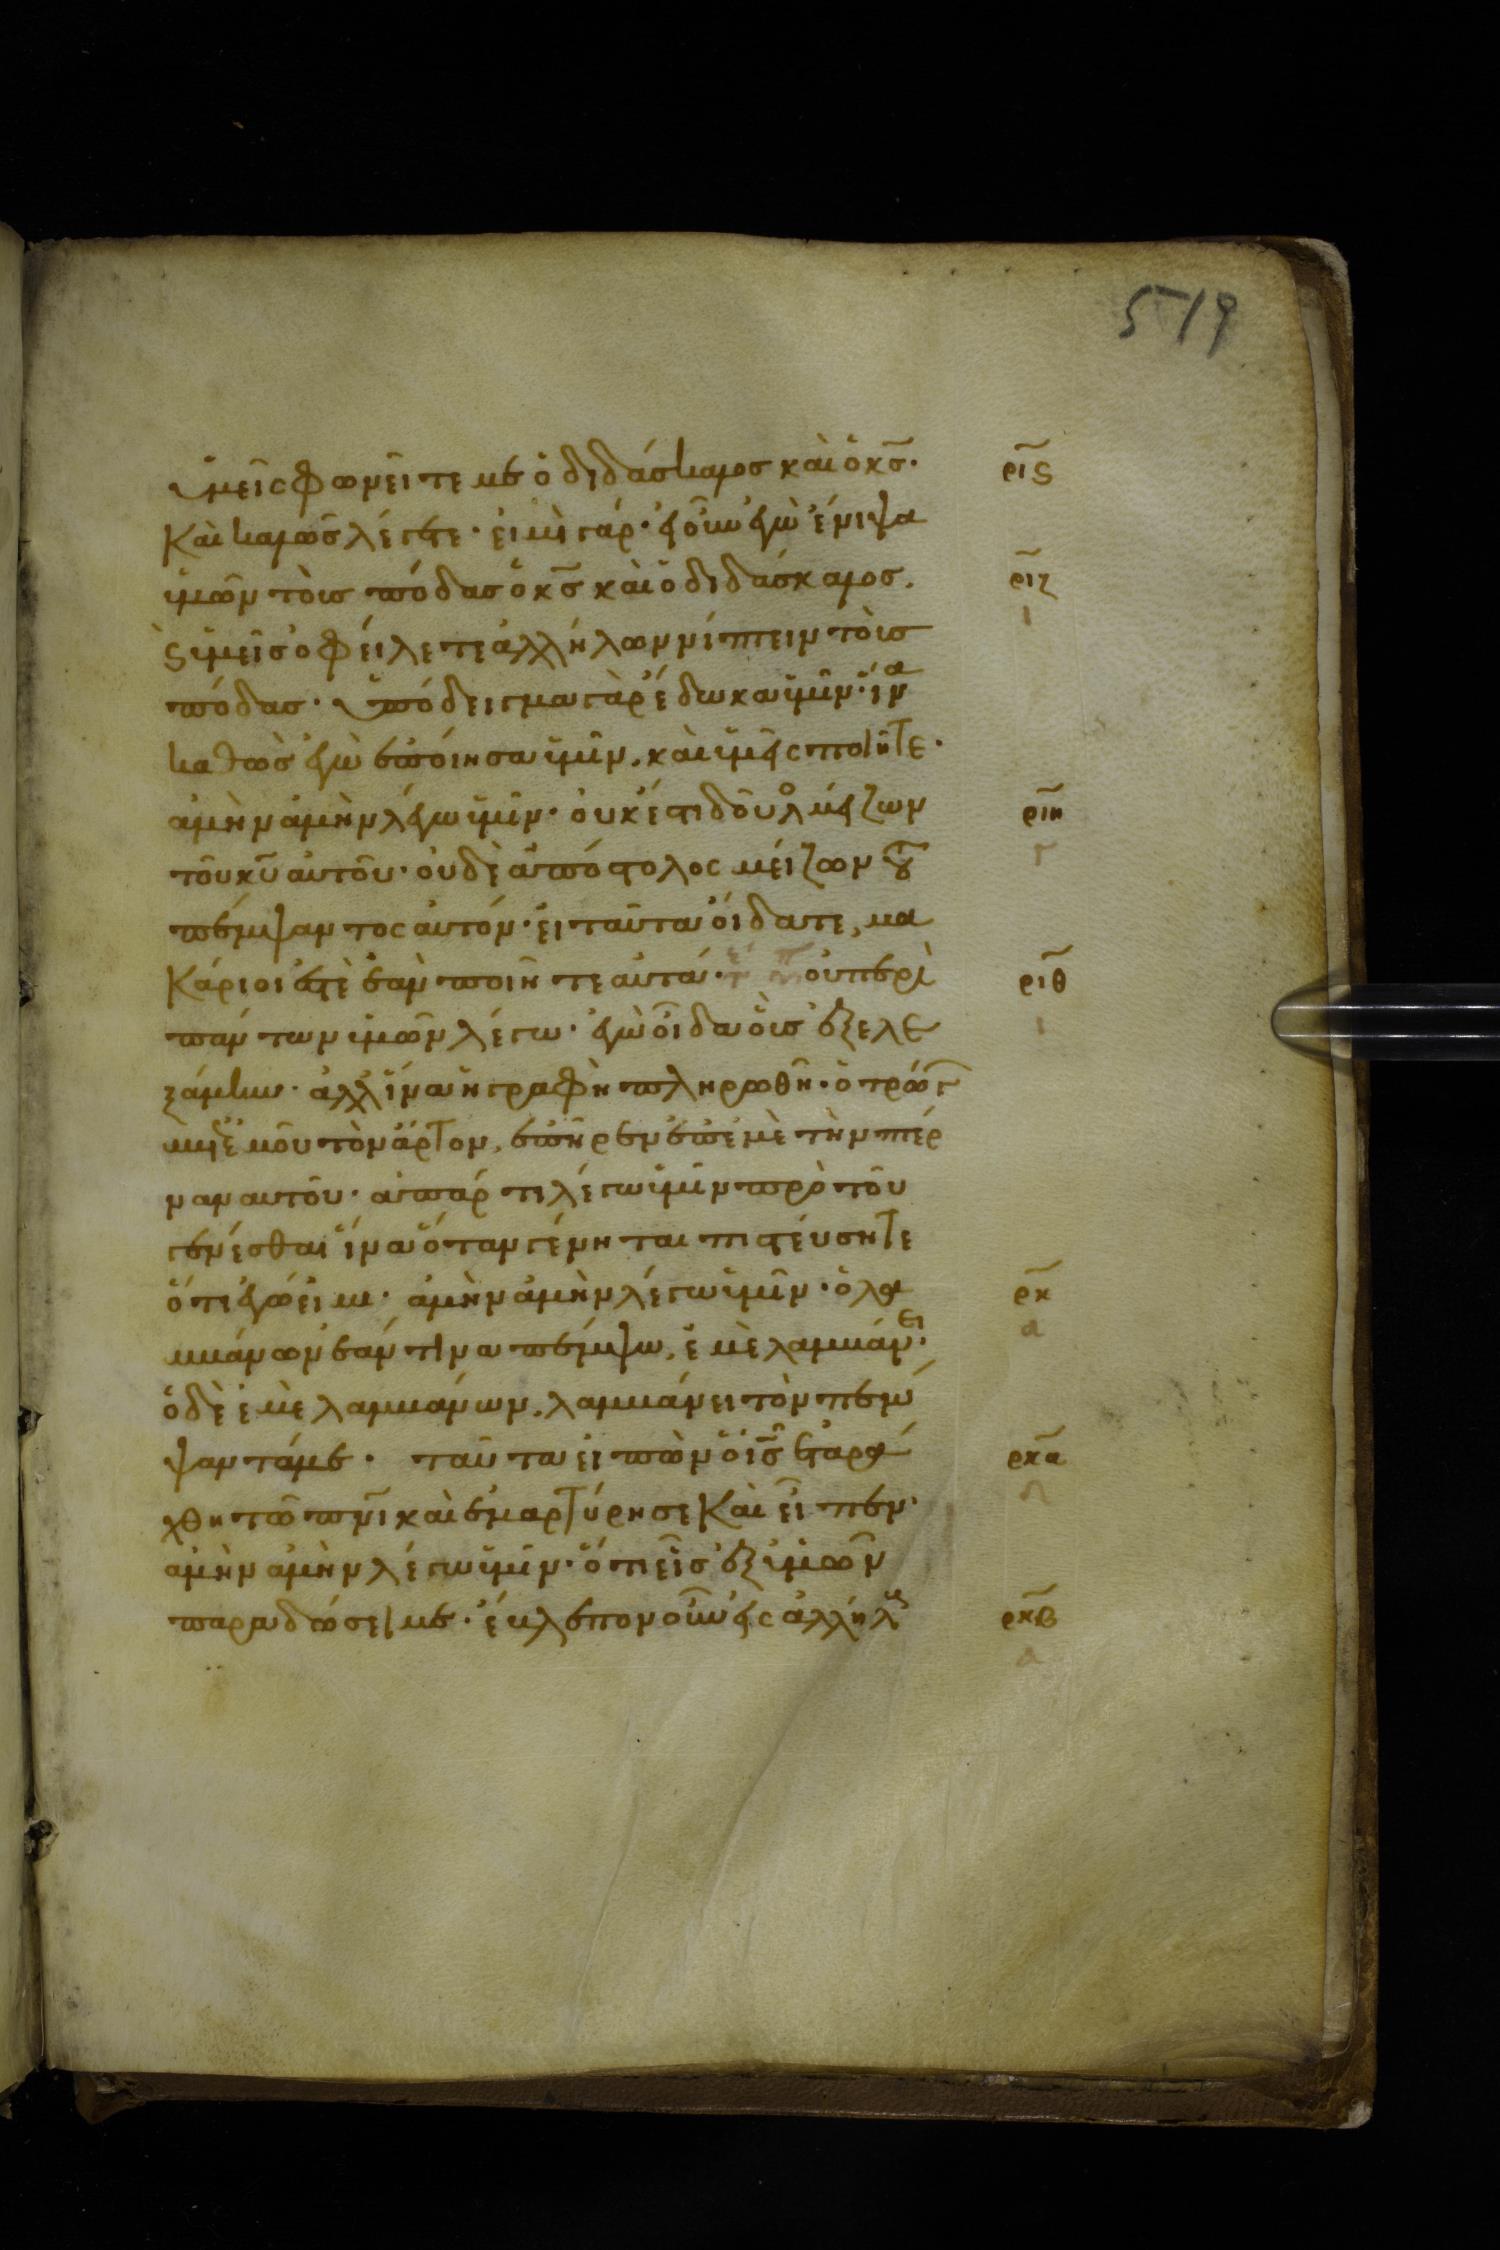 519
ὑμεῖς φωνεῖτε με ὁ διδάσκαλοσ καὶ ὁ κ̅σ̅· ρις
Καὶ καλῶσ λέγετε· εἰμὶ γάρ· εἰ οὖν ἐγὼ ἔνιψα
ὑμῶν τοὺσ πόδασ ὁ κ̅σ̅ καὶ ὁ διδάσκαλοσ. ριζ
ϗ ὑμεῖσ ὀφείλετε ἀλλήλων νίπτειν τοὺσ ι
πόδασ· ὑπόδειγμα γὰρ ἔδωκα ὑμῖν· ἵνα
καθὼσ ἐγὼ ἐποίησα ὑμῖν, καὶ ὑμεῖς ποιῆτε·
ἀμὴν ἀμὴν λέγω ὑμῖν· οὐκ ἔστι δοῦλο μείζων ριη
τοῦ κ̅υ̅ αὐτοῦ· οὐδὲ ἀπόστολος μείζων τοῦ γ
πέμψαντος αὐτόν· εἰ ταῦτα οἴδατε, μα
Κάριοι ἐστὲ ἐὰν ποιῆτε αὐτά· οὐ περὶ ριθ
πάντων ὑμῶν λέγω· ἐγὼ οἶδα οὓσ ἐξελε ι
ξάμην· ἀλλ' ἵνα ἡ γραφὴ πληρωθῆ· ὁ τρώγ
μετ' ἐμοῦ τὸν ἄρτον, ἐπῆρεν ἐπ' ἐμὲ τὴν πτέρ
ναν αυτοῦ· ἀπάρτι λέγω ὑμῖν πρὸ τοῦ
γενέσθαι ἵνα ὅταν γένηται πιστεύσητε
ὅτι ἐγώ εἰμι· ἀμὴν ἀμὴν λέγω ὑμῖν· ὁ λα ρκ
μβάνων ἐάν τινα πέμψω, ἐμὲ λαμβάνει· α
ὁ δὲ ἐμὲ λαμβάνων, λαμβάνει τὸν πέμ
ψαντά με· ταῦτα εἰπὼν ὁ ι̅σ̅ ἐταρά ρκα
χθη τῶ π̅ν̅ι̅ καὶ ἐμαρτύρησε Καὶ εἶπεν·
ἀμὴν ἀμὴν λέγω ὑμῖν· ὅτι εἷσ ἐξ ὑμῶν
παραδώσει με· ἔβλεπον οὖν εἰς ἀλλήλους ρκβ
α